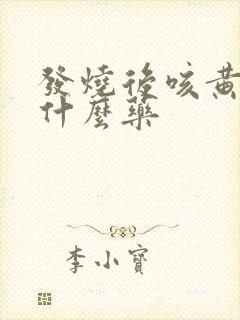 發燒後咳黃
什麼藥
李小寶